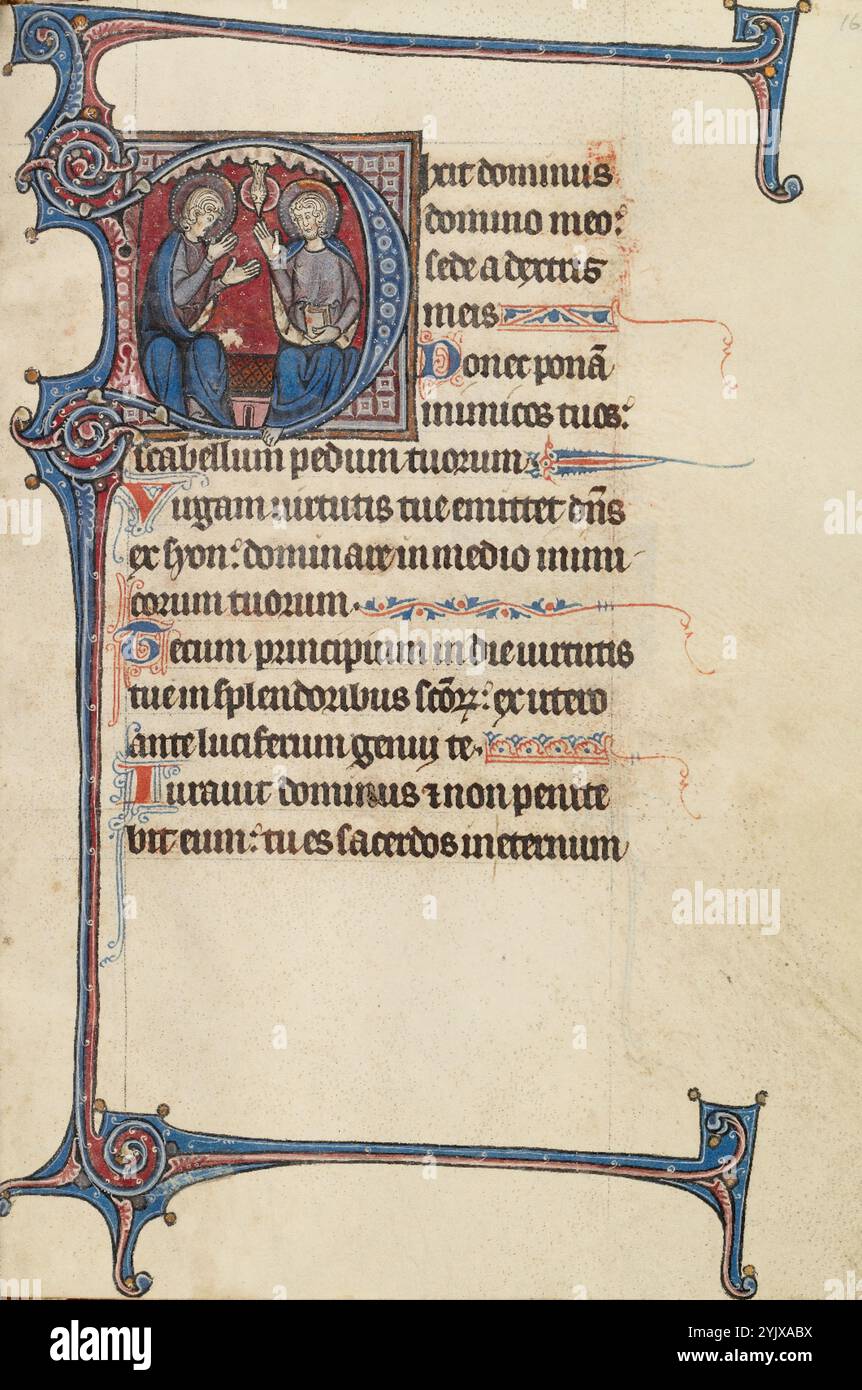 16
Dixit dominus
domino meo:
sede a dextris
meis
Donec ponā
inimicos tuos:
scabellum pedum tuorum
Virgam uirtutis tue emittet dn̄s
ex syon: dominare in medio inimi
corum tuorum.
Tecum principium in die uirtutis
tue in splendoribus sc̄oꝝ: ex utero
ante luciferum genui te.
Iurauit dominus ⁊ non penite
bit eum: tu es sacerdos in eternum
alamy
alamy
alamy
alamy
alamy
Image ID: 2YJXABX
www.alamy.com